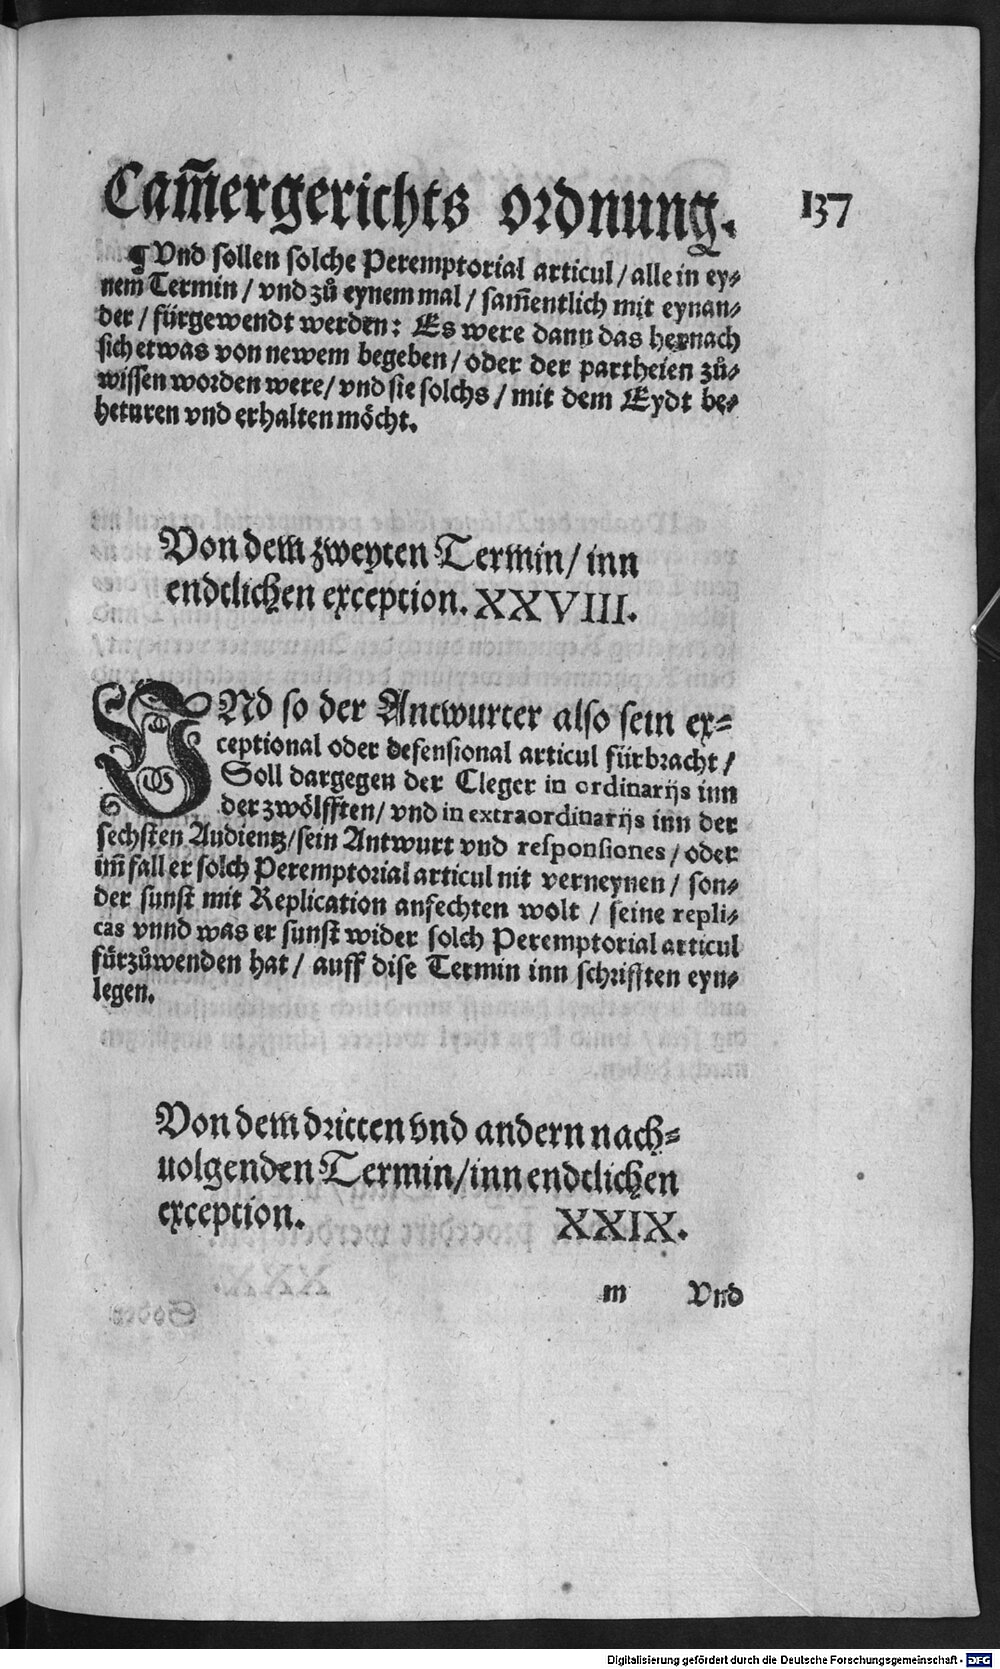 Cam̃ergerichts ordnung.
137
¶ Vnd sollen solche Peremptorial articul / alle in ey⸗
nem Termin / vnd zů eynem mal / sam̃entlich mit eynan⸗
der / fürgewendt werden: Es were dann das hernach
sich etwas von newem begeben / oder der partheien zů⸗
wissen worden were / vnd sie solchs / mit dem Eydt be⸗
heturen vnd erhalten möcht.
Von dem zweyten Termin / inn
endtlichen exception. XXVIII.
VNd so der Antwurter also sein ex⸗
ceptional oder defensional articul fürbracht /
Soll dargegen der Cleger in ordinarijs inn
der zwölfften / vnd in extraordinarijs inn der
sechsten Audientz / sein Antwurt vnd responsiones / oder
im̃ fall er solch Peremptorial articul nit verneynen / son⸗
der sunst mit Replication anfechten wolt / seine repli⸗
cas vnnd was er sunst wider solch Peremptorial articul
fürzůwenden hat / auff dise Termin inn schrifften eyn⸗
legen.
Von dem dritten vnd andern nach⸗
uolgenden Termin / inn endtlichen
exception. XXIX.
m Vnd
Digitalisierung gefördert durch die Deutsche Forschungsgemeinschaft - DFG